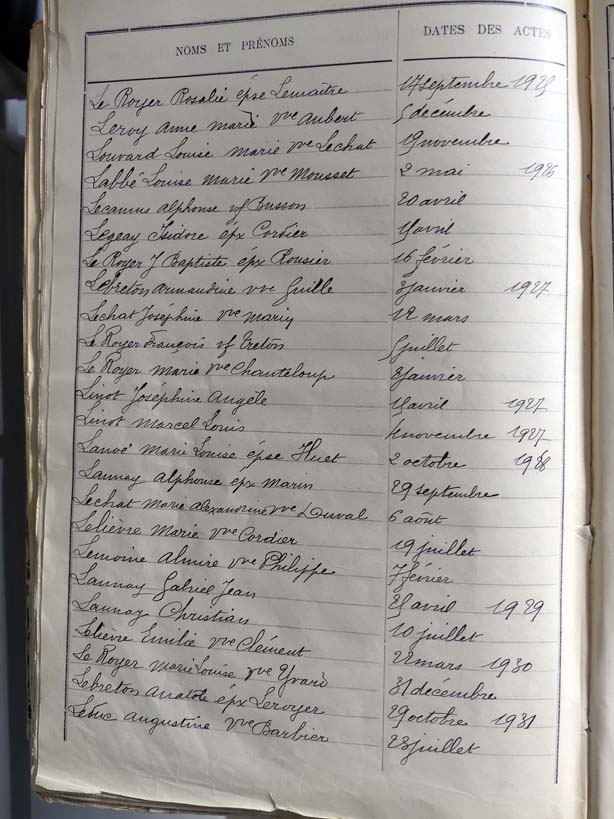 NOMS ET PRÉNOMS DATES DES ACTES
Le Royer Rosalie épse Lemaître 17 septembre 1925
Leroy Anne marie vve Aubert 5 décembre
Louvard Louise marie vve Lechat 19 novembre
Labbé Louise Marie vve Mousset 2 mai 1926
Lecamus Alphonse vf Busson 20 avril
Legeay Isidore épx Cordier avril
Le Royer J Baptiste épx Rousier 16 février
Lebreton Armandine vve Guille janvier 1927
Lechat Joséphine vve Marin 12 mars
Le Royer François vf Breton juillet
Le Royer Marie vve Chanteloup janvier
Linot Joséphine Angèle avril 1927
Linot Marcel Louis novembre 1927
Lanoé Marie Louise épse Huet 2 octobre 1928
Launay Alphonse épx Marin 29 septembre
Lechat Marie Alexandrine vve Duval 6 août
Lelièvre Marie vve Cordier 19 juillet
Lemoine Almire vve Philippe 7 février
Launay Gabriel Jean avril 1929
Launay Christian 10 juillet
Lelièvre Emilie vve Clément 22 mars 1930
Le Royer Marie Louise vve Yvard 31 décembre
Lebreton Anatole épx Leroyer 29 octobre 1931
Leduc Augustine vve Barbier 23 juillet